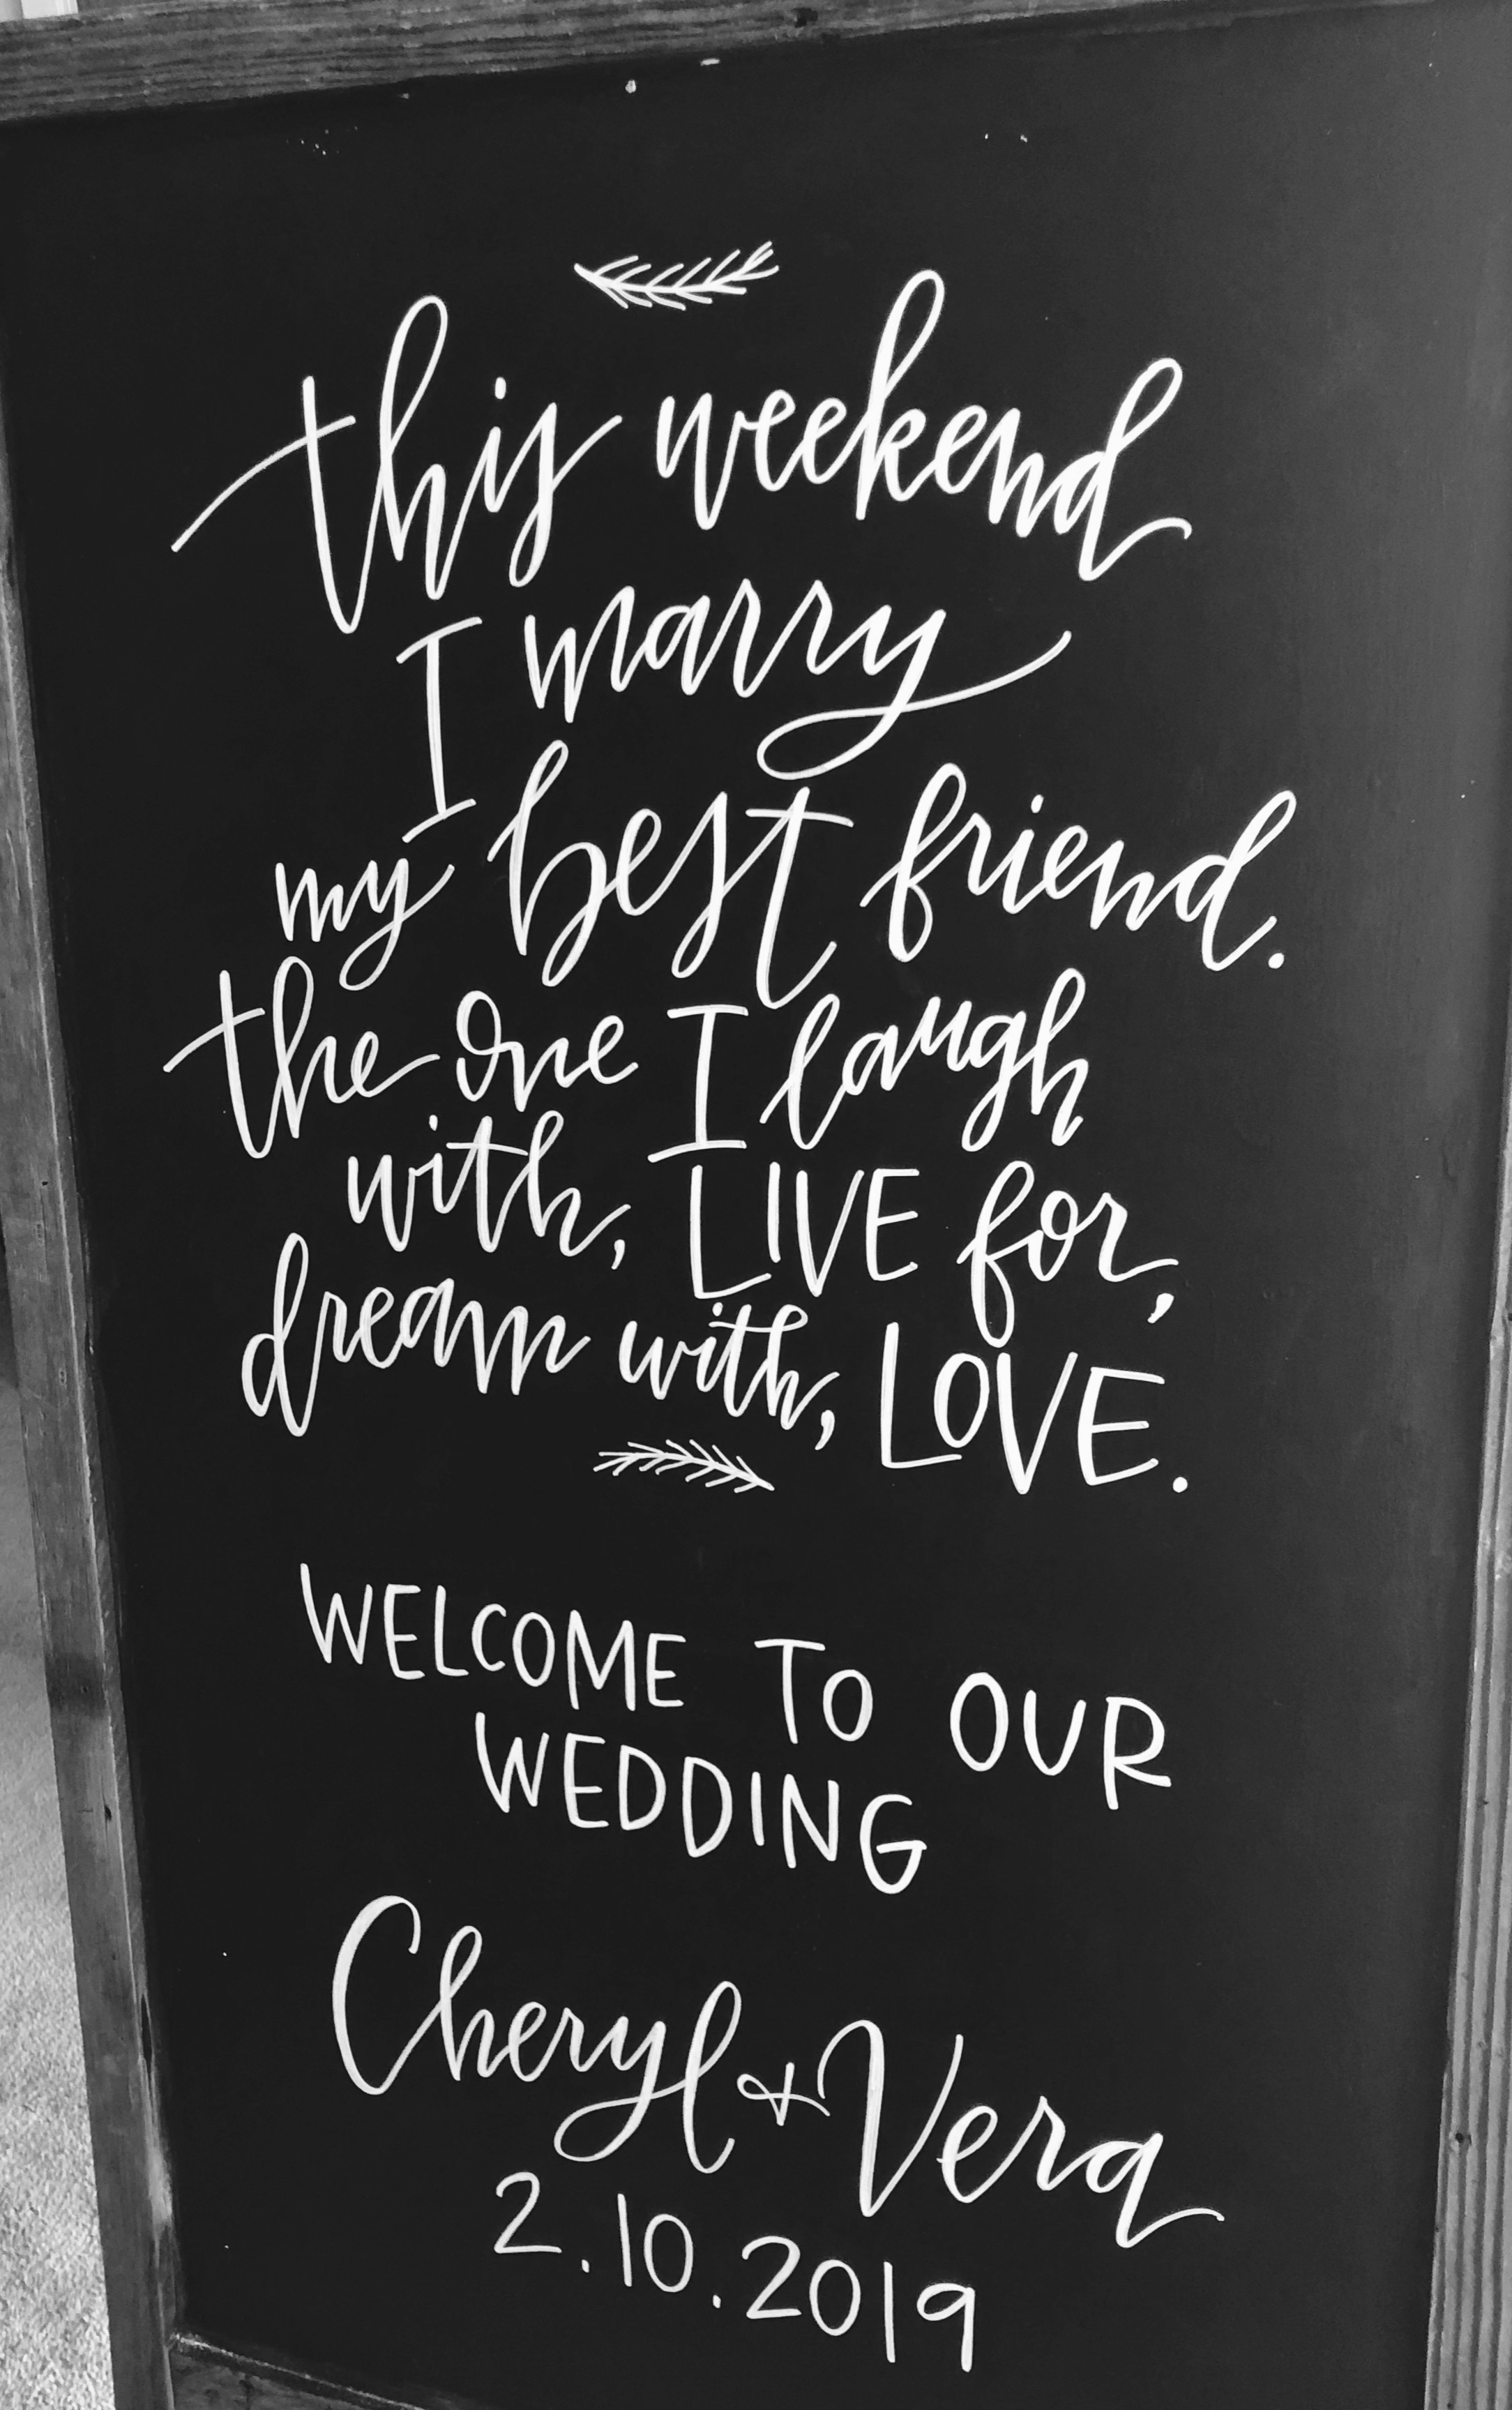 this weekend
I marry
my best friend.
the one I laugh
with, LIVE for,
dream with, LOVE.
WELCOME TO OUR
WEDDING
Cheryl + Vera
2.10.2019